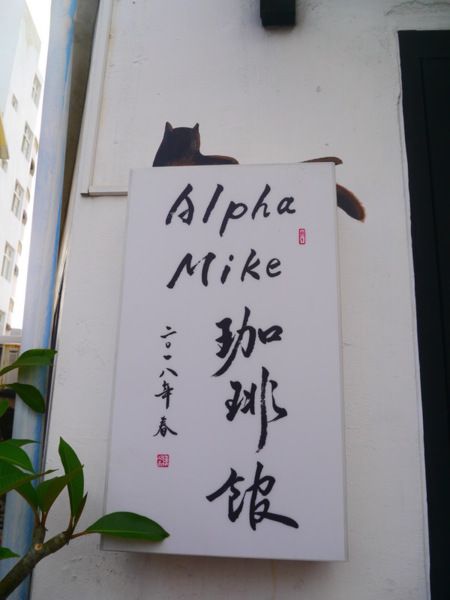 Alpha
Mike
珈琲館
二〇一八年春